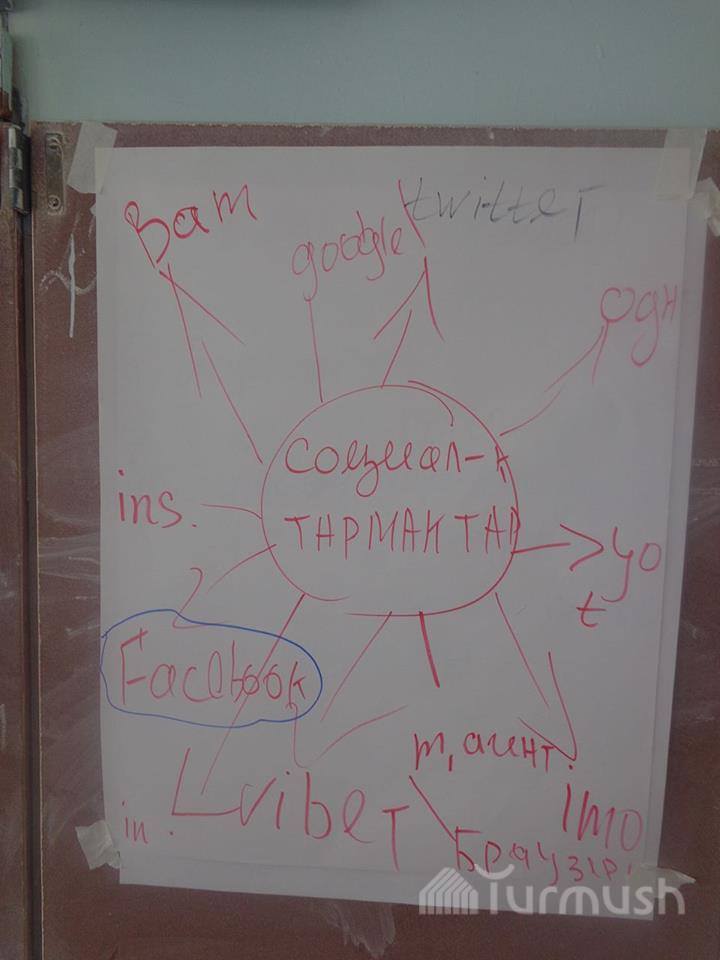 Ват
google
twitter
одн
социал-к
тармактар
ins.
yo
t
Facebook
m, агент.
in.
viber
Imo
Браузер
Turmush